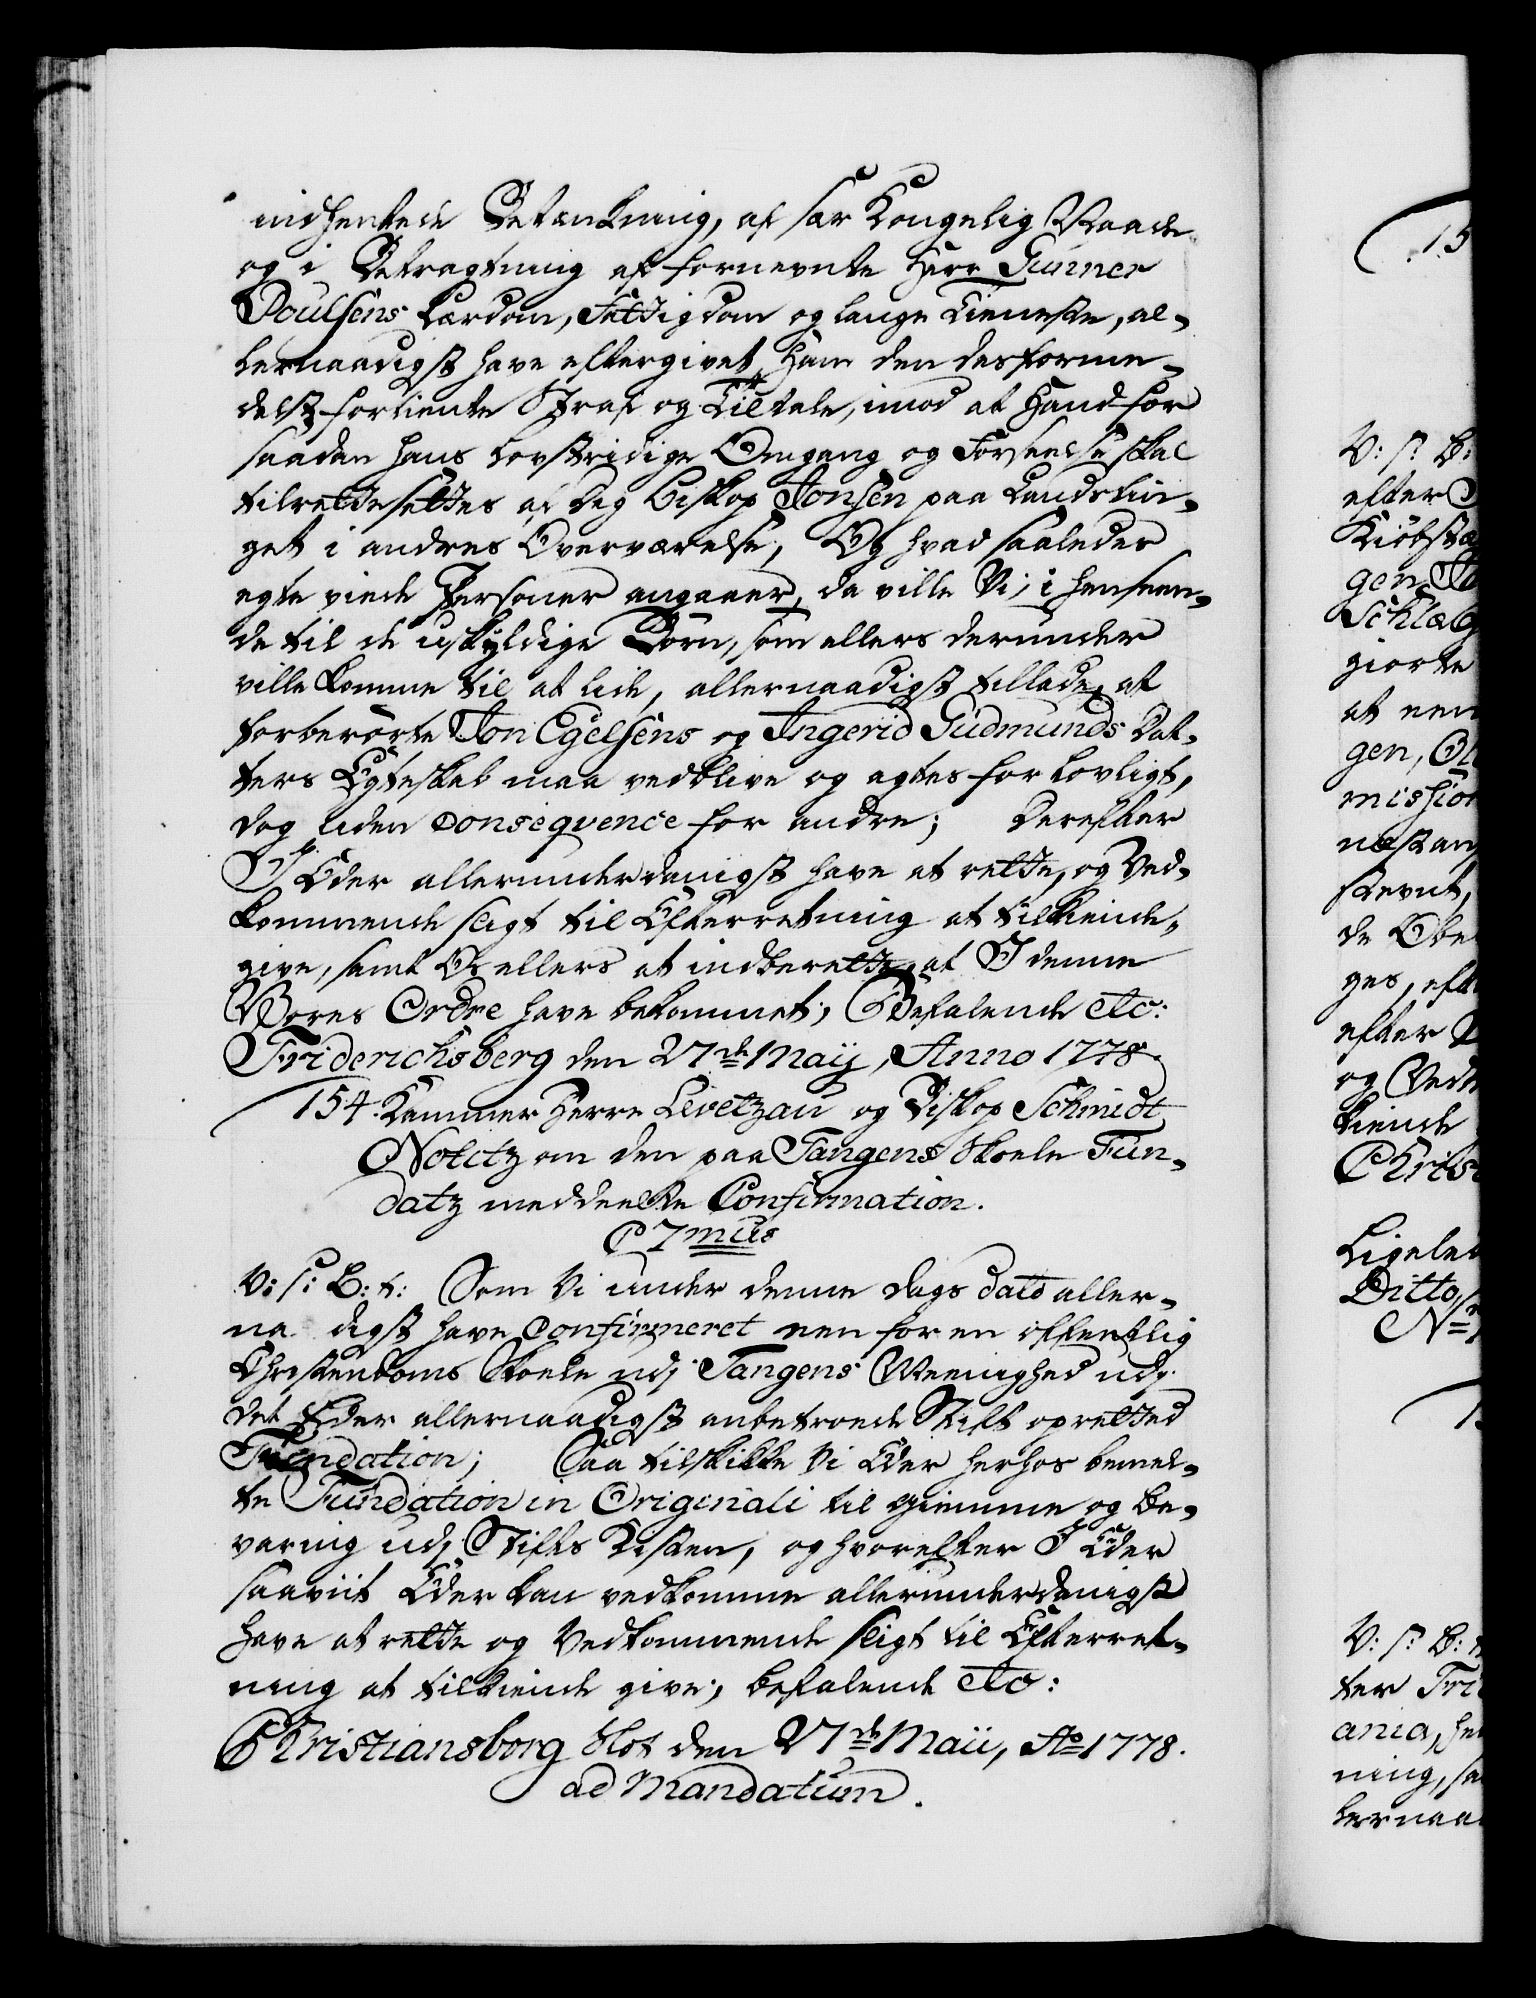 indhentede Betænkning, af sær Kongelig Naade
og i Betragtning af fornevnte Herr Gunner
Poulsens Lærdom, Fattigdom og lange Tieneste, al-
lernaadigst have eftergivet ham den desforme-
delst fortiente Straf og Tiltale, imod at Hand for
saadan hans lovstridige Omgang og Forseelse skal
tilrettesettes af Dig Biskop Jonsen paa Landstin-
get i andres Overværelse; Og hvad saaledes
egte viede Personer angaaer, da ville Vi, i henseen-
de til de uskyldige Børn, som ellers derunder
ville komme til at lide, allernaadigst tillade, at
forberørte Jon Egelsens og Ingerid Gudmunds Dat-
ters Egteskab maa vedblive og agtes for lovligt,
dog uden Conseqvence for andre; Derefter
I Eder allerunderdanigst have at rette, og Ved-
kommende sligt til Efterretning at tilkiende-
give, samt Os ellers at indberette, at I denne
Vores Ordre have bekommet; Befalende etc:
Friderichsberg den 27de Maij, Anno 1778.
154. Kammer Herre Levetzau og Biskop Schmidt
Notitz om den paa Tangens Skoele Fun-
datz meddeelte Confirmation.
C7mus
V: s: B: t: Som Vi under denne Dags dato aller-
na digst have Confirmeret een for en offentlig
Christendoms Skoele udj Tangens Meenighed udj
det Eder allernaadigst anbetroede Stift opretted
Fundation; Saa tilskikke Vi Eder herhos bemel-
te Fundation in Originali til Giemme og Be-
varing udj Stifts Kisten, og hvorefter I Eder
saaviit Eder kan vedkomme allerunderdanigst
have at rette og Vedkommende sligt til Efterret-
ning at tilkiende give; befalende etc:
Christiansborg Slot den 27de Maii, Ao 1778.
ad Mandatum.
15
V: s: B:
efter
Kiøbstæ
gen
Schlæ
giorte
at een
gen,
mission
næstan
stevnt,
de Obe
ges, eft
efter
og Vedk
kiende
Chris
Ligele
Ditto,
No
V: s: B: t
ter Fri
ania, he
ning, sa
lernaa